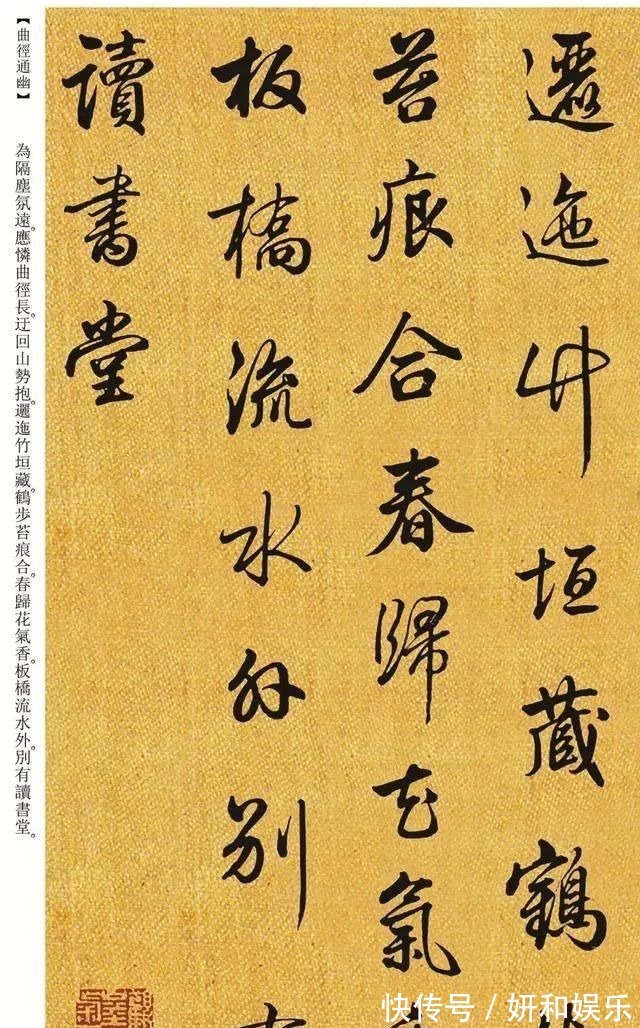 【曲徑通幽】
為隔塵氛遠。應憐曲徑長。迂回山勢抱。邐迤竹垣藏。鶴步苔痕合。春歸花氣香。板橋流水外。別有讀書堂。
邐迤竹垣藏鶴
苔痕合春歸花氣
板橋流水外別
讀書堂
快传号 / 妍和娱乐